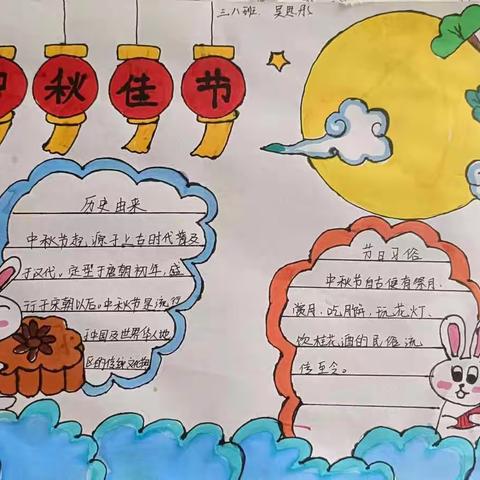 三八班. 吴思彤
中秋佳节
历史由来
中秋节起源于上古时代普及
于汉代。定型于唐朝初年,盛
行于宋朝以后。中秋节是流行
中国及世界华人地
区的传统文化
节日习俗
中秋节自古便有祭月、
赏月、吃月饼、玩花灯、
饮桂花酒的民俗,流
传至今。